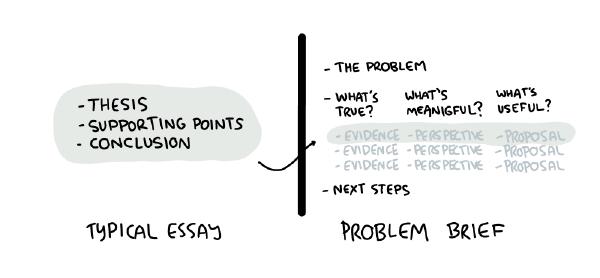 - THESIS
- SUPPORTING POINTS
- CONCLUSION
TYPICAL ESSAY
- THE PROBLEM
- WHAT'S TRUE? WHAT'S MEANIGFUL? WHAT'S USEFUL?
- EVIDENCE - PERSPECTIVE - PROPOSAL
- EVIDENCE - PERSPECTIVE - PROPOSAL
- EVIDENCE - PERSPECTIVE - PROPOSAL
- NEXT STEPS
PROBLEM BRIEF